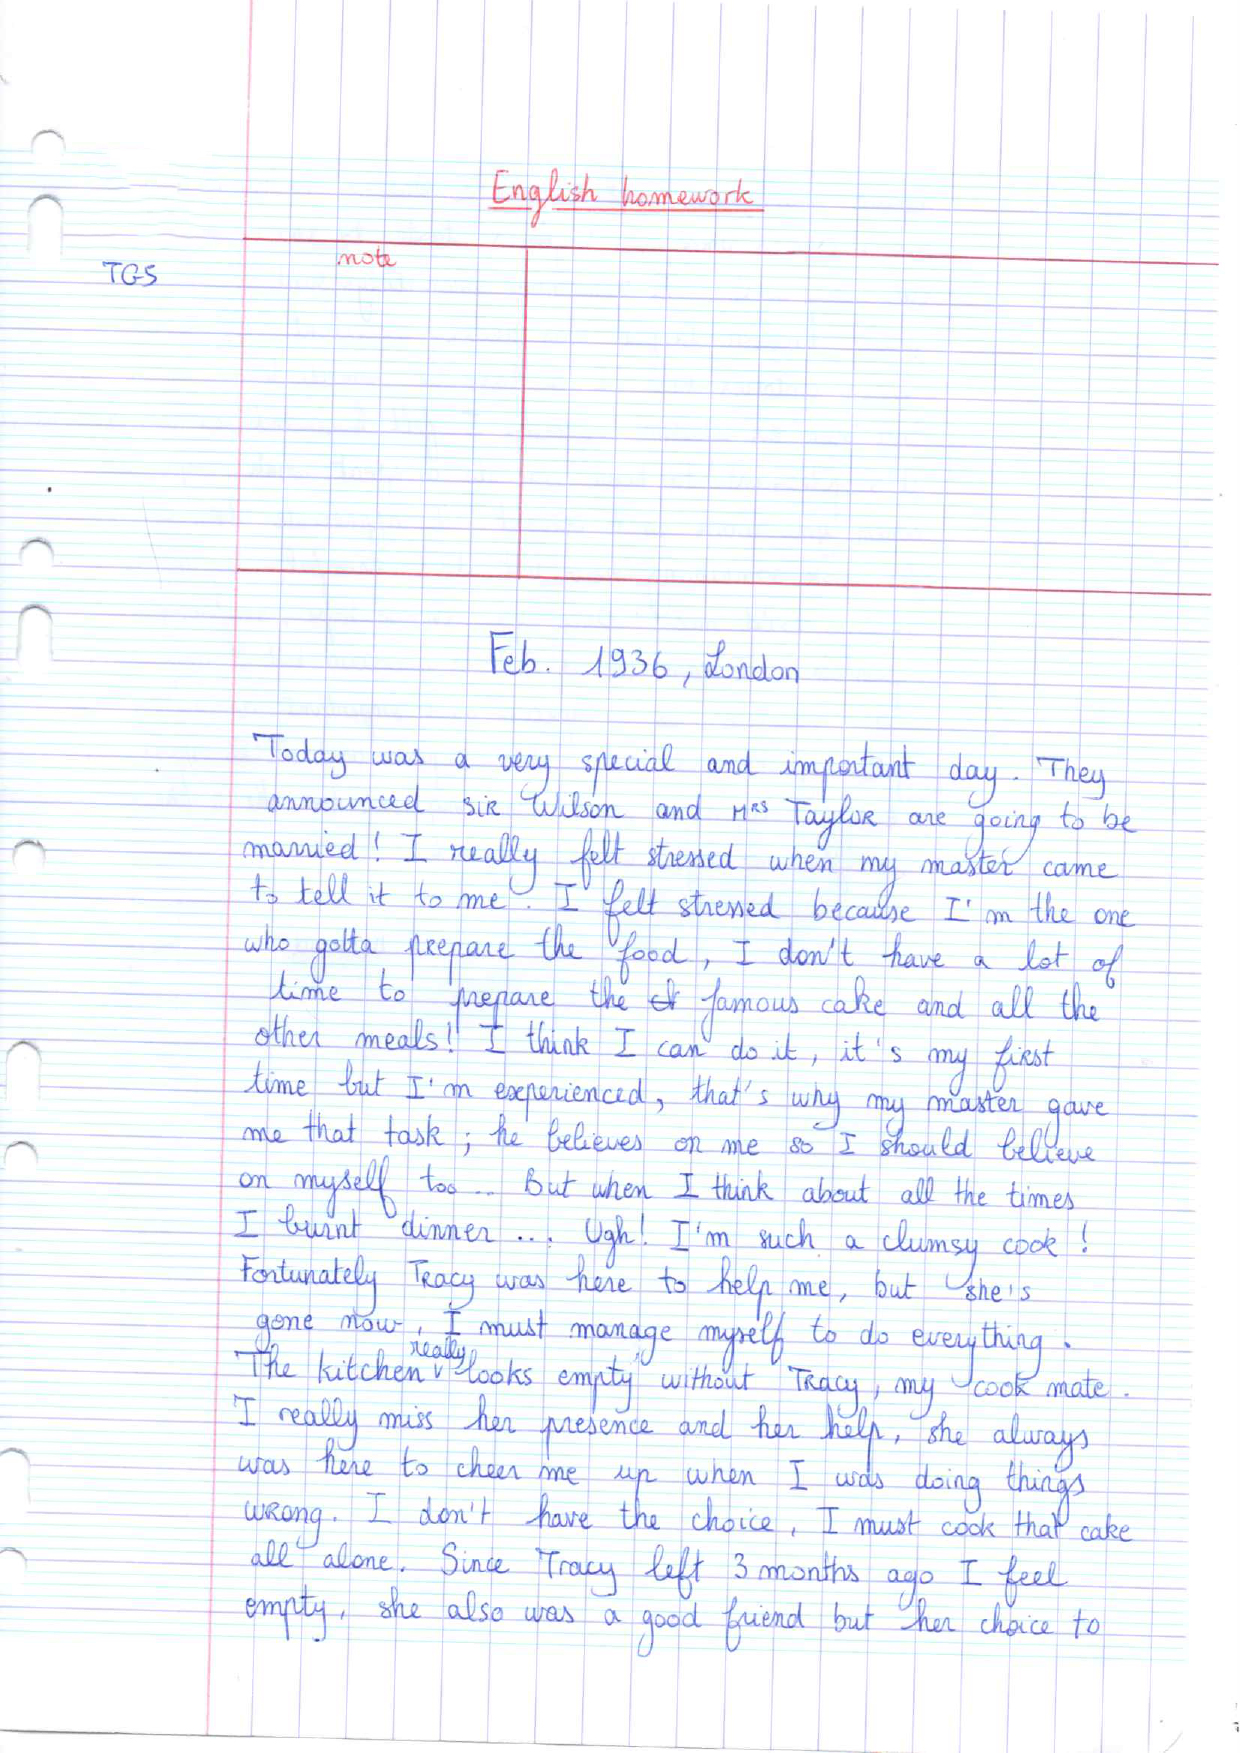 English homework
note
TG5
Feb. 1936, London
Today was a very special and important day. They
announced sir Wilson and Mrs Taylor are going to be
married! I really felt stressed when my master came
to tell it to me. I felt stressed because I'm the one
who gotta prepare the food, I don't have a lot of
time to prepare the famous cake and all the
other meals! I think I can do it, it's my first
time but I'm experienced, that's why my master gave
me that task; he believes on me so I should believe
on myself too... But when I think about all the times
I burnt dinner ... Ugh! I'm such a clumsy cook!
Fortunately Tracy was here to help me, but she's
gone now, I must manage myself to do everything.
The kitchen really looks empty without Tracy, my cook mate.
I really miss her presence and her help, she always
was here to cheer me up when I was doing things
wrong. I don't have the choice, I must cook that cake
all alone. Since Tracy left 3 months ago I feel
empty, she also was a good friend but her choice to